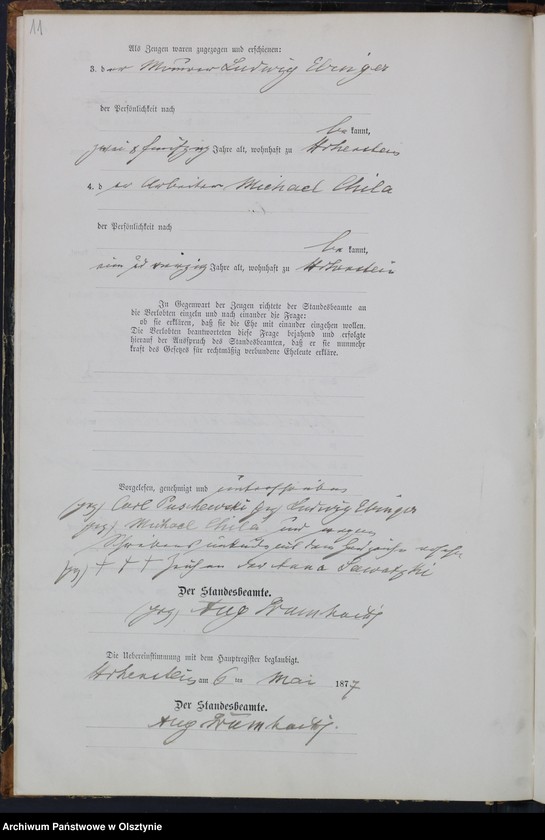 11
Als Zeugen waren zugezogen und erschienen:
3. der Maurer Ludwig Ebinger
der Persönlichkeit nach
be kannt,
zwei & fünfzig Jahre alt, wohnhaft zu Hohenstein
4. der Arbeiter Michael Chila
der Persönlichkeit nach
be kannt,
ein und vierzig Jahre alt, wohnhaft zu Hohenstein
In Gegenwart der Zeugen richtete der Standesbeamte an
die Verlobten einzeln und nach einander die Frage:
ob sie erklären, daß sie die Ehe mit einander eingehen wollen.
Die Verlobten beantworteten diese Frage bejahend und erfolgte
hierauf der Ausspruch des Standesbeamten, daß er sie nunmehr
kraft des Gesetzes für rechtmäßig verbundene Eheleute erkläre.
Vorgelesen, genehmigt und unterschrieben
(gez) Carl Puschewski (gez) Ludwig Ebinger
(gez) Michael Chila und wegen
Schreibensunkunde mit dem Handzeichen versehen
(gez) + + + Zeichen der Anna Sawatzki
Der Standesbeamte.
(gez) Aug
Die Uebereinstimmung mit dem Hauptregister beglaubigt.
Hohenstein am 6 ten Mai 1877
Der Standesbeamte.
Aug
Archiwum Państwowe w Olsztynie